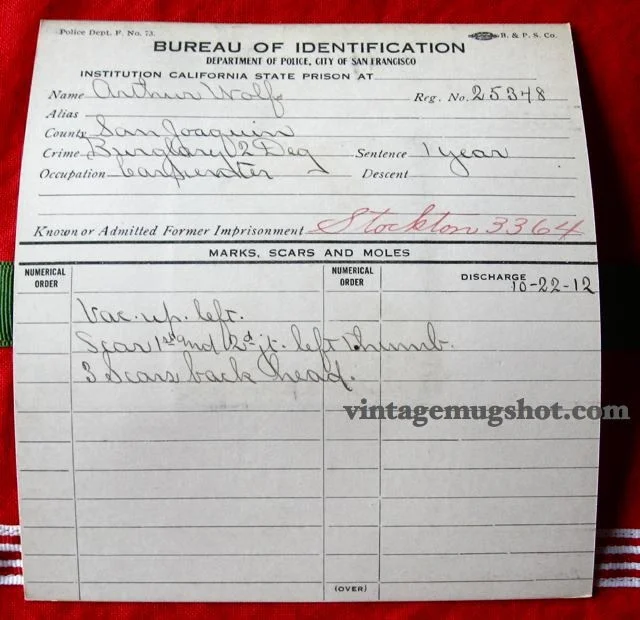 Police Dept. F. No. 73. B. & P. S. Co.
BUREAU OF IDENTIFICATION
DEPARTMENT OF POLICE, CITY OF SAN FRANCISCO
INSTITUTION CALIFORNIA STATE PRISON AT
Name Arthur Wolf Reg. No. 25348
Alias
County San Joaquin
Crime Burglary 2 Deg Sentence 1 year
Occupation Carpenter Descent
Known or Admitted Former Imprisonment Stockton 3364
MARKS, SCARS AND MOLES
NUMERICAL ORDER NUMERICAL ORDER DISCHARGE 10-22-12
Vac. up. left.
Scar 1st and 2d jt. left Thumb.
3 Scars back head.
vintagemugshot.com
(OVER)